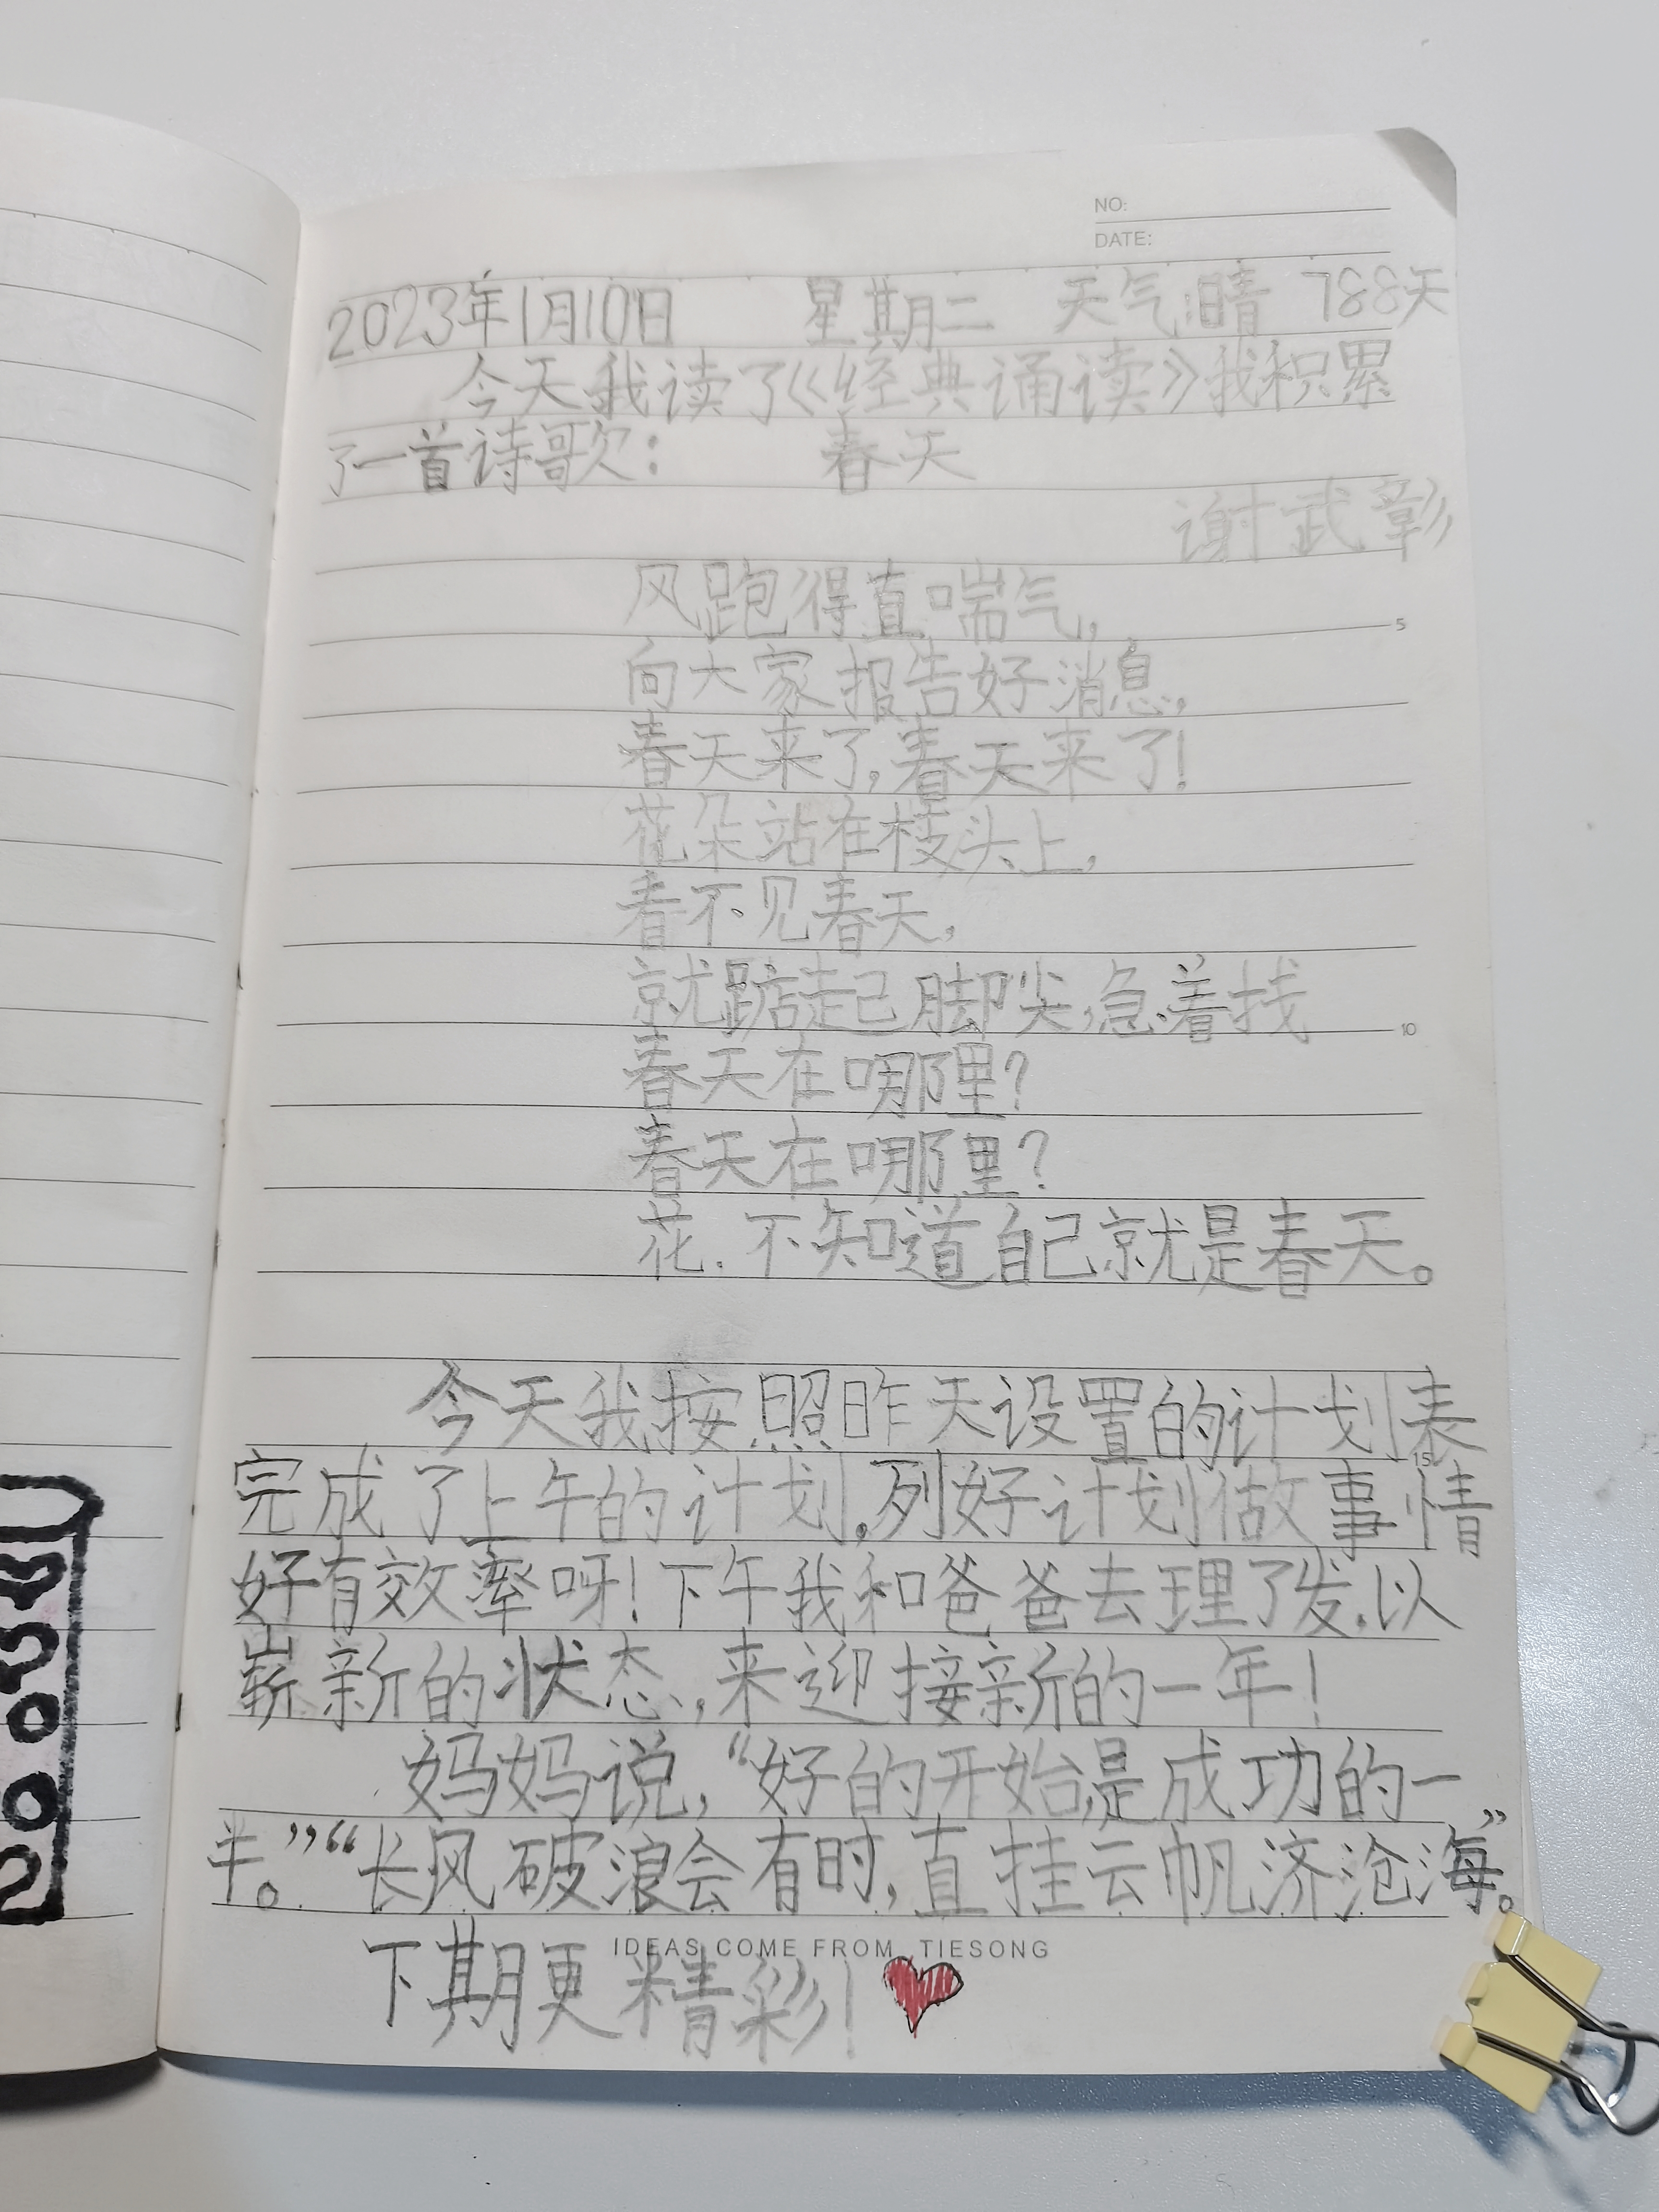 NO:
DATE:
2023年1月10日 星期二 天气:晴 788天
今天我读了《经典诵读》我积累
了一首诗歌: 春天
谢武彰
风跑得直喘气,
向大家报告好消息,
春天来了,春天来了!
花朵站在枝头上,
看不见春天,
就踮起脚尖,急着找
春天在哪里?
春天在哪里?
花.不知道自己就是春天。
今天我按照昨天设置的计划表
完成了上午的计划,列好计划做事情
好有效率呀!下午我和爸爸去理了发.以
崭新的状态,来迎接新的一年!
妈妈说,“好的开始是成功的一
半。”“长风破浪会有时,直挂云帆济沧海”。
IDEAS COME FROM TIESONG
下期更精彩!
5
10
15